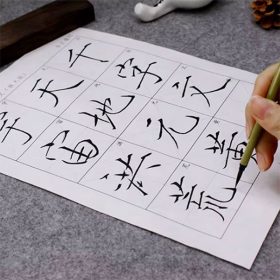 千字文
天地元黄
宇宙洪荒